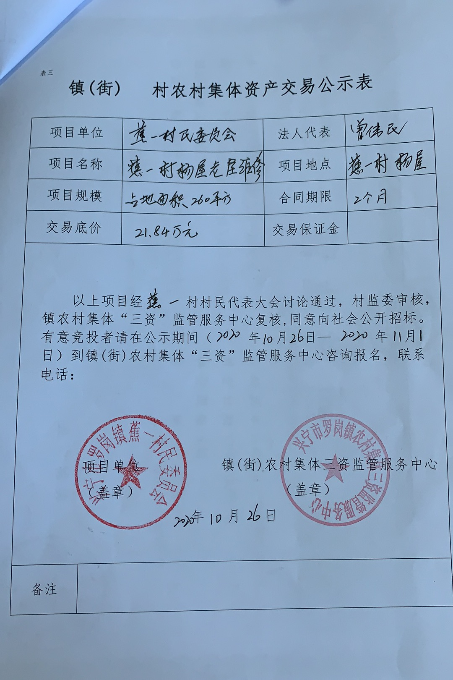 表三
镇(街) 村农村集体资产交易公示表
项目单位 蕉一村民委员会 法人代表 曾伟民
项目名称 蕉一村杨屋老屋维修 项目地点 蕉一村杨屋
项目规模 占地面积260平方 合同期限 2个月
交易底价 21.84万元 交易保证金
以上项目经蕉一村村民代表大会讨论通过，村监委审核，
镇农村集体“三资”监管服务中心复核，同意向社会公开招标。
有意竞投者请在公示期间（2020年10月26日—2020年11月1
日）到镇(街)农村集体“三资”监管服务中心咨询报名，联系
电话：
兴宁市罗岗镇蕉一村民委员会
兴宁市罗岗镇农村集体三资监管服务中心
项目单位 镇(街)农村集体三资监管服务中心
（盖章） （盖章）
2020年10月26日
备注